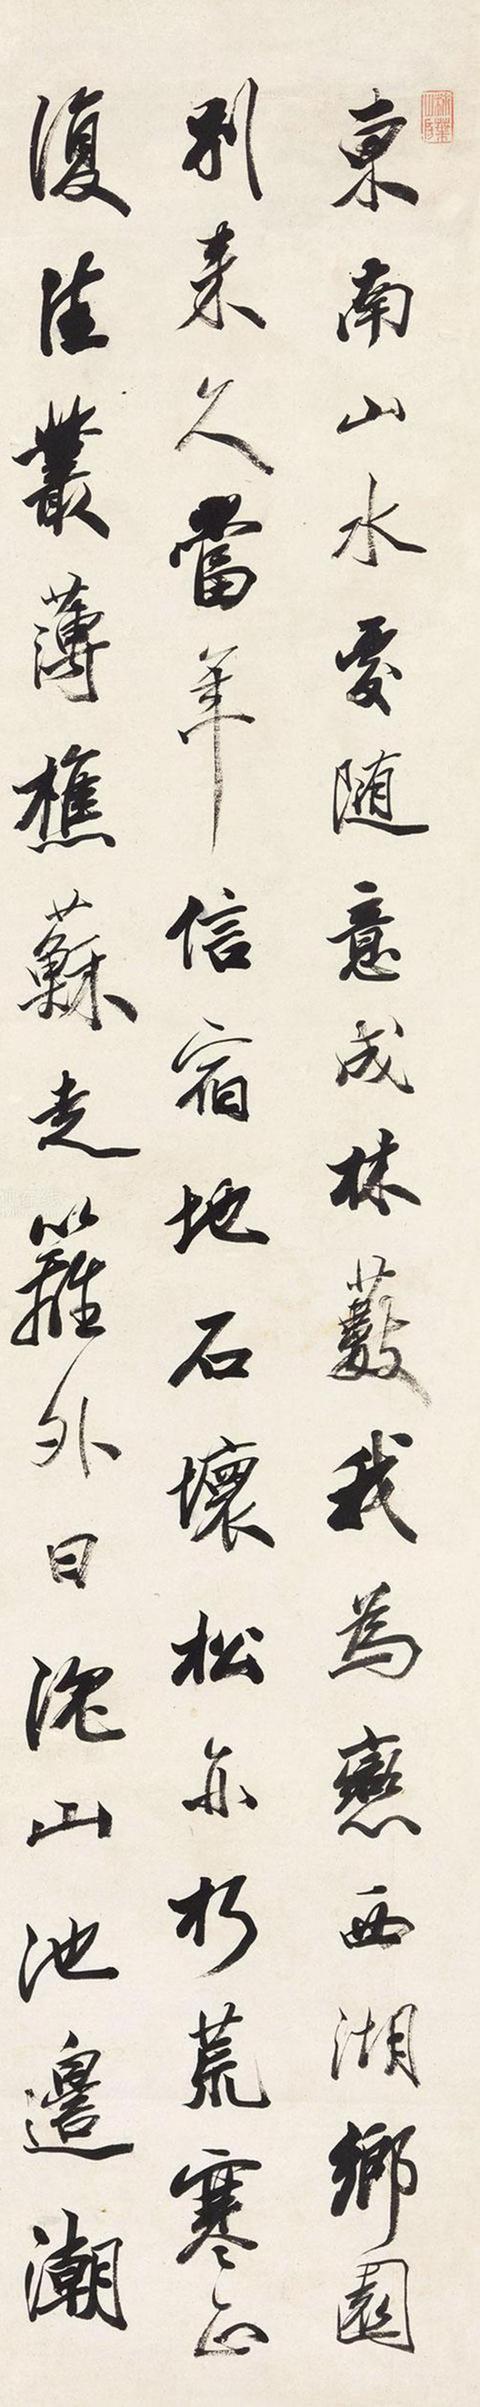 東南山水愛随意成林藪我為戀西湖鄉園
別来久當年信宿地石壞松亦朽荒寒正
復佳叢薄樵蘇走籬外日沈山池邊潮